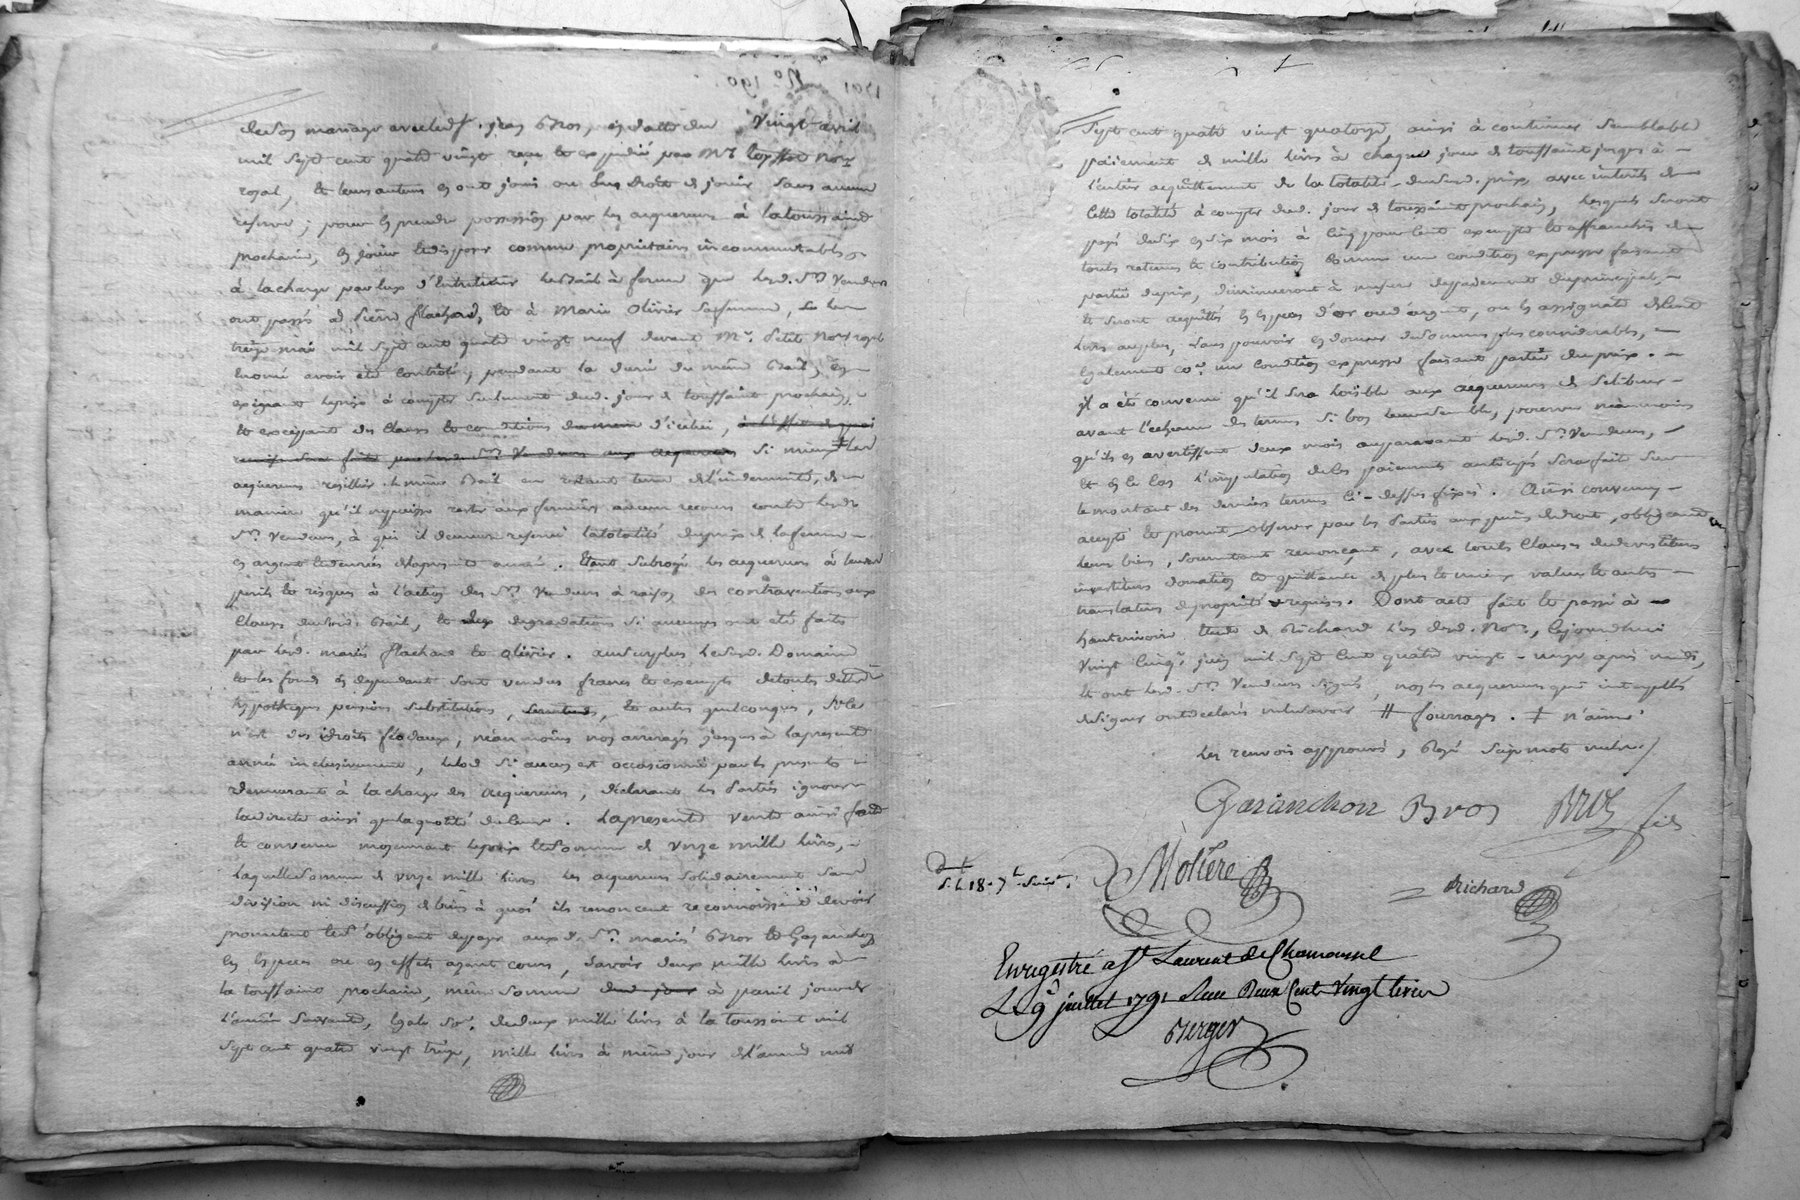 de son mariage avec led. sr. jean Bros, en datte du vingt avril
mil sept cent quatre vingt, reçu et expédié par Me
royal, et leurs auteurs en ont joui ou eu droit de jouir sans aucune
reserve; pour en prendre possession par les acquereurs à la toussaint
prochaine, en jouir et disposer comme proprietaires incommutables,
à la charge par eux d'entretenir le bail à ferme que lesd. srs. vendeurs
ont passés à pierre flachard, et à Marie Olivier sa femme, le
treize mai mil sept cent quatre vingt neuf devant Me. Petit Nore royal
avoir été contrôlé, pendant la durée du même Bail, en
exigeant le prix à compter seulement dud. jour de toussaint prochain,
et exceptant des clauses et conditions d'icelui,
srs. vendeurs aux acquereurs si mieux les
acquereurs resilier le même Bail en restant tenu de l'indemnité, de
maniere qu'il ne puisse rester aux fermiers aucun recours contre lesd.
srs. vendeurs, à qui il demeure reservé la totalité du prix de la ferme
en argent et denrées de la presente année. Etant subrogé les acquereurs à leurs
perils et risques à l'action des srs. vendeurs à raison des contraventions aux
clauses dud. Bail, et des degradations si aucunes ont été faites
par lesd. mariés flachard et olivier. au surplus led. Domaine
et les fonds en dependant sont vendus francs et exempts de toutes dettes
hypotheques pensions substitutions, servitudes, et autres quelconques, si ce
n'est des droits féodaux, néanmoins nos arreragés jusques à la presente
année inclusivement, lelod si aucun est occasionné par les presentes
demeurant à la charge des acquereurs, declarant les parties ignorer
la directe ainsi que la quotité du cens. La presente vente ainsi faite
et convenue moyennant le prix et somme de onze mille livres,
laquelle somme de onze mille livres les acquereurs solidairement sans
division ni discussion de biens à quoi ils renoncent reconnoissent devoir
promettent et s'obligent de payer aux d. srs. mariés Bros et Garanchon
en especes ou en effets ayant cours, savoir deux mille livres à
la toussaint prochain, même somme dud jour à pareil jour de
l'année suivante, egale so. de deux mille livres à la toussaint mil
sept cent quatre vingt treize, mille livres à même jour de l'année mil
sept cent quatre vingt quatorze, ainsi à continuer semblable
paiement de mille livres à chaque jour de toussaint jusques à
l'entier acquittement de la totalité dud. prix, avec interets de
cette totalité à compter dud. jour de toussaint prochain, lesquels seront
payés de six en six mois à cinq pour cent exempts et affranchis de
toutes retenues et contributions comme une condition expresse faisant
partie du prix, diminueront à mesure des paiements du principal,
et seront acquittés en especes d'or ou d'argent, ou en assignats de cent
livres au plus, sans pouvoir en donner de sommes plus considerables,
egalement co. une condition expresse faisant partie du prix.
il a été convenu qu'il sera loisible aux acquereurs de se liberer
avant l'echeance des termes si bon leur semble, pourvu néanmoins
qu'ils en avertissent deux mois auparavant lesd. srs. vendeurs,
et en ce cas l'imputation de ces paiements anticipés sera faite sur
le montant des derniers termes ci-dessus fixés. Ainsi convenu
accepté et promis observer par les parties aux peines de droit, obligeant
leurs biens, soumettant renonçant, avec toutes clauses de devestitures
investitures donation et quittance de plus et mieux value et autres
translatives de propriété requises. Dont acte fait et passé à
hauterivoire etude de Richard l'un desd. Nores, cejourd'hui
vingt cinq. juin mil sept cent quatre vingt-onze après midi,
et ont lesd. srs. vendeurs signés, non les acquereurs qui interpellés
de signer ont declarés ne le savoir # fourrages. + n'aime
les renvois approuvés, rayé mots nuls./
Garanchon Bros Bros fils
Moliere
Richard
Enregistré à St. Laurent de Chamousset
Le 9 juillet 1791 Reçu Deux Cent vingt livres
Berger